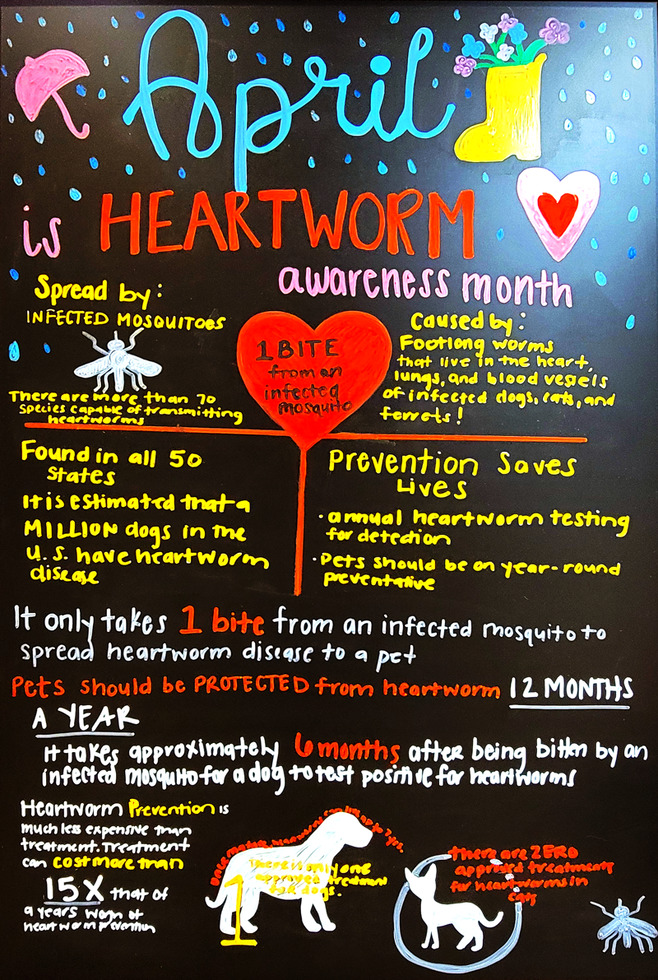 April
is HEARTWORM
awareness month
Spread by:
INFECTED MOSQUITOES
There are more than 70
species capable of transmitting
heartworms
1 BITE
from an
infected
mosquito
Caused by:
Footlong worms
that live in the heart,
lungs, and blood vessels
of infected dogs, cats, and
ferrets!
Found in all 50
States
It is estimated that a
MILLION dogs in the
U.S. have heartworm
disease
Prevention Saves
Lives
· annual heartworm testing
for detection
· Pets should be on year-round
preventative
It only takes 1 bite from an infected mosquito to
spread heartworm disease to a pet
Pets should be PROTECTED from heartworm 12 MONTHS
A YEAR
It takes approximately 6 months after being bitten by an
infected mosquito for a dog to test positive for heartworms
Heartworm Prevention is
much less expensive than
treatment. Treatment
can cost more than
15X that of
a years worth of
heartworm prevention
heartworms can live up to 7 yrs.
1
There is only one
approved treatment
for dogs.
There are ZERO
approved treatments
for heartworms in
cats